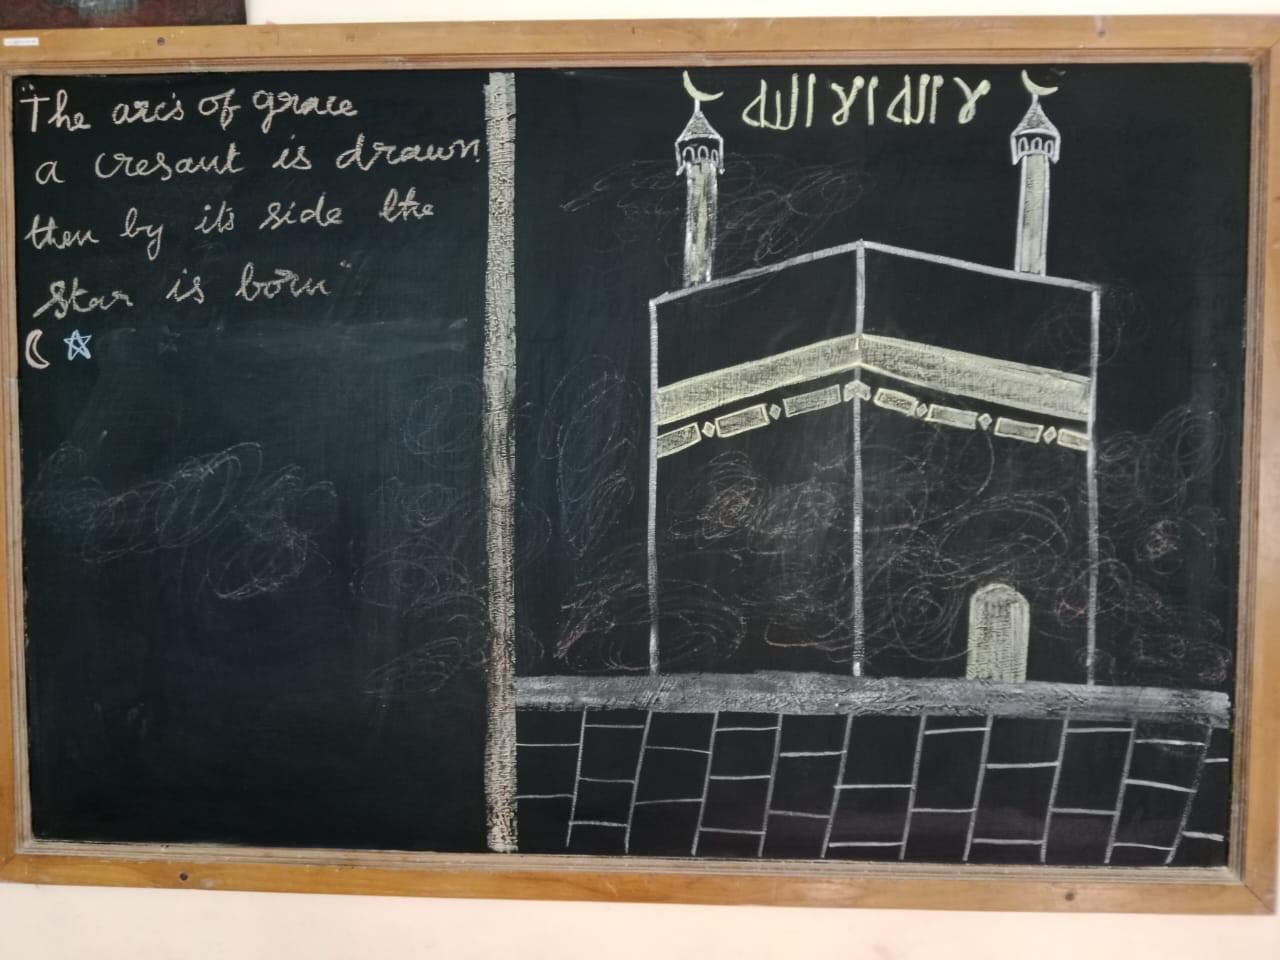 "The arcs of grace
a cresant is drawn
then by it's side the
star is born"
لا الله الا الله